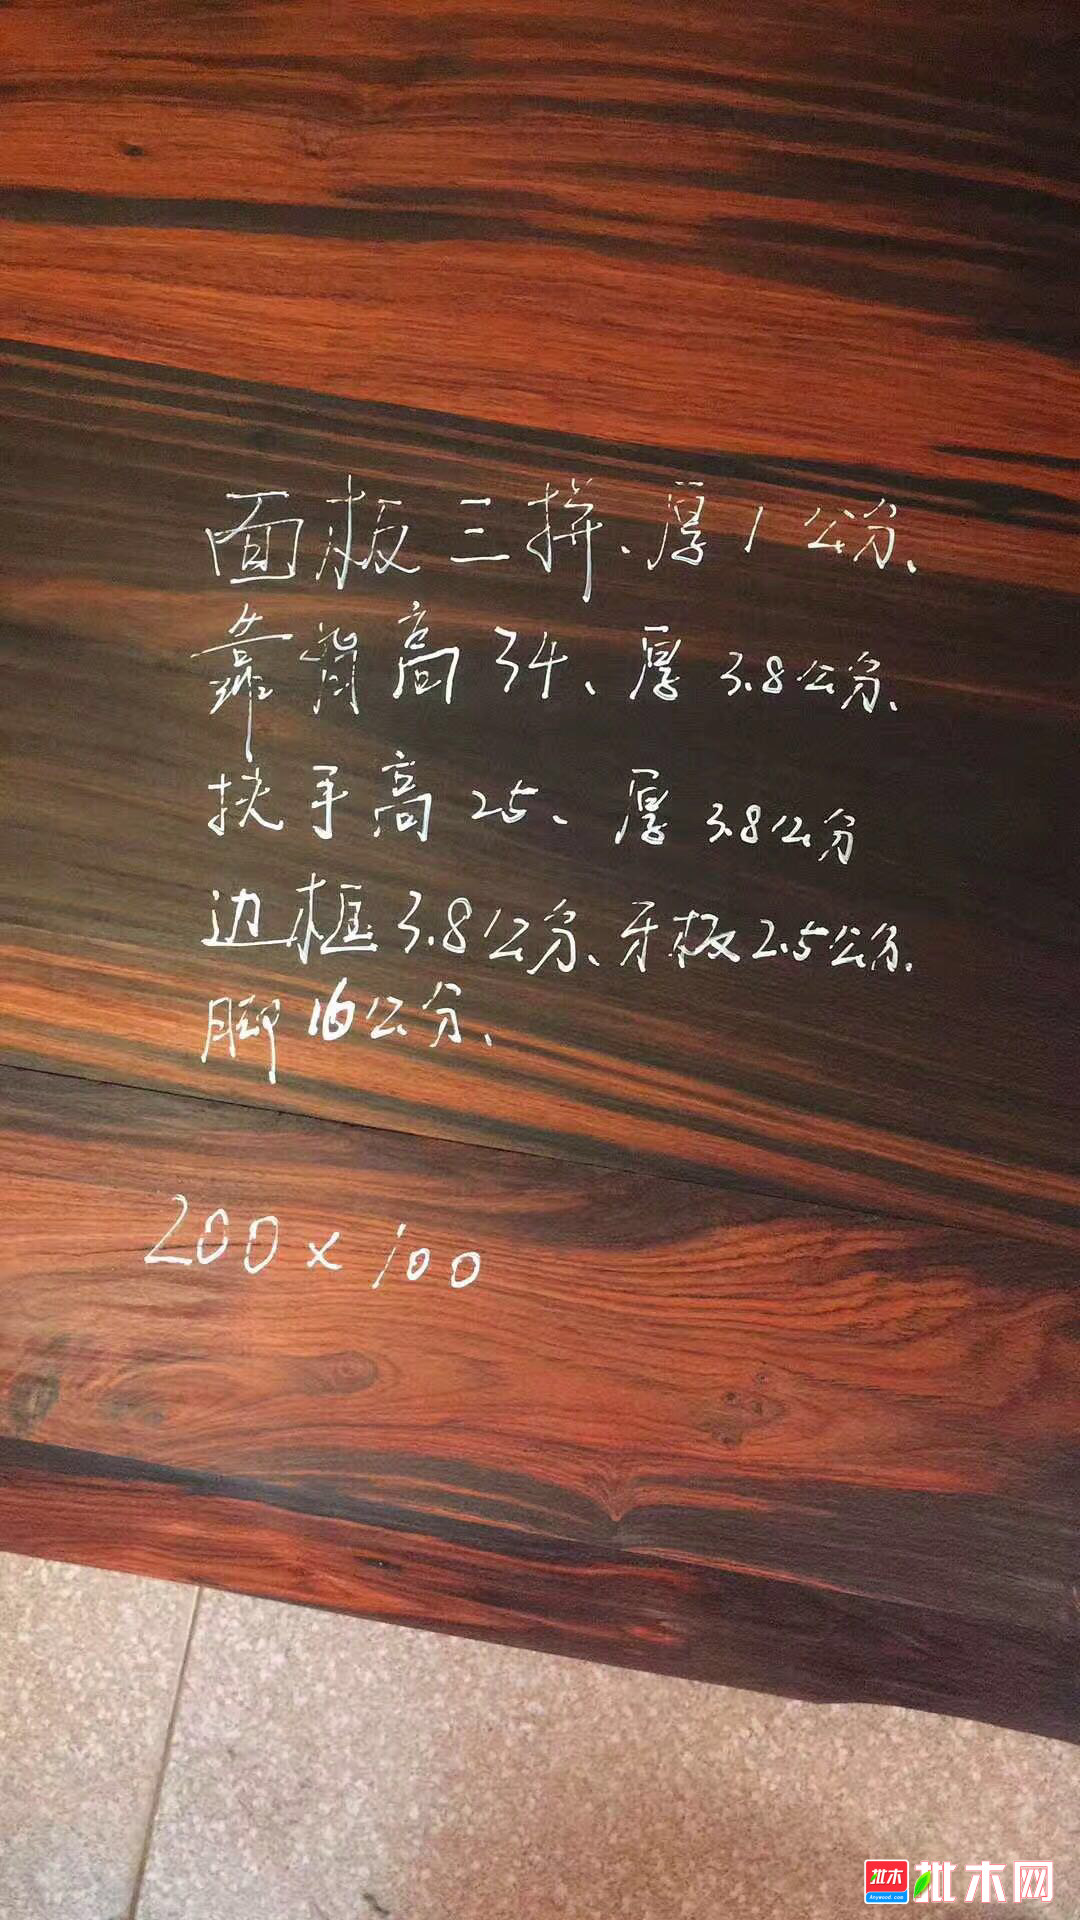 面板三拼、厚1公分、
靠背高34、厚3.8公分、
扶手高25、厚3.8公分
边框3.8公分、牙板2.5公分、
脚16公分、
200×100
批木 批木网
Anywood.com